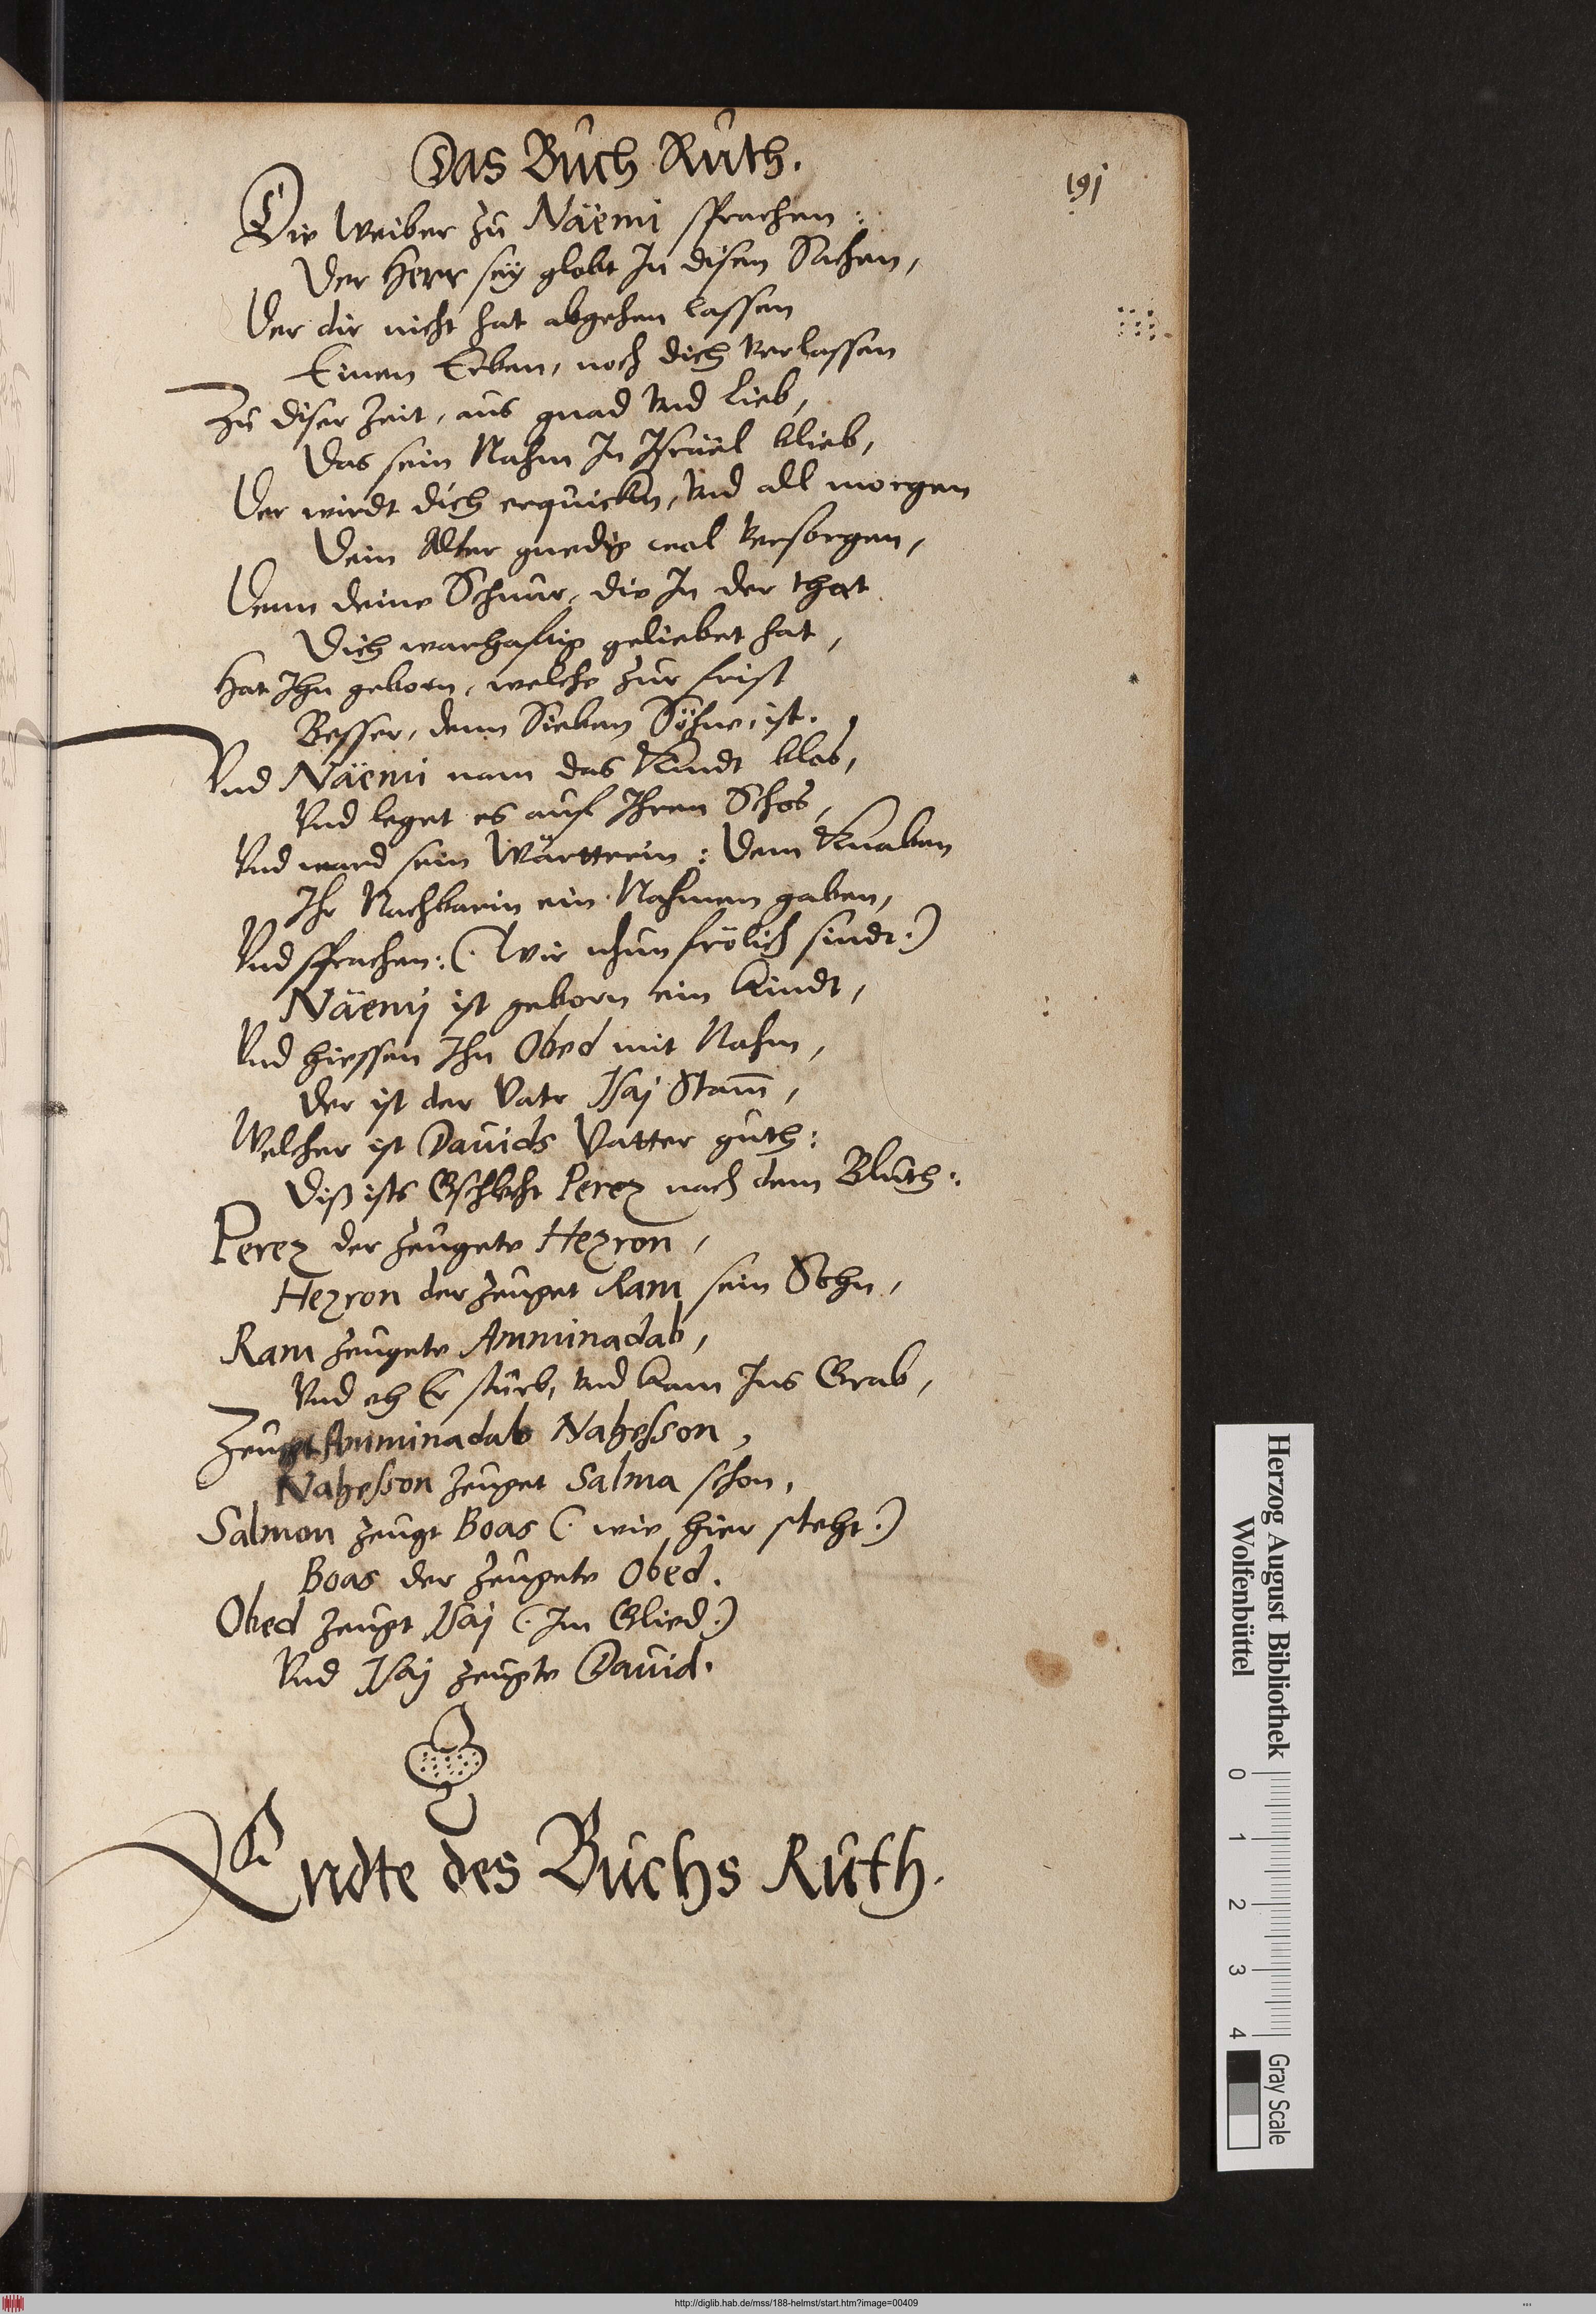 Das Buch Ruth.
191
Die Weiber zu Näemi sprachen:
Der Herr seÿ globt In disen Sachen,
Der dir nicht hat abgehen lassen
Einen Erben, noch dich verlassen
Zu diser Zeit, aus gnad vnd lieb,
Das sein Nahm In Israël blieb,
Der wirdt dich erquicken, vnd all morgen
Dein Alter gnedig wol versorgen,
Denn deine Schnur, die In der that
Dich warhafftig geliebet hat,
Hat Ihn geborn, welche zur frist
Besser, denn Sieben Söhne, ist.
Vnd Näemi nam das Kindt blos,
Vnd leget es auf Ihren Schos,
Vnd ward sein Wärtterin: Dem Knaben
Ihr Nachbarin ein Nahmen gaben,
Vnd sprachen: (. Wir nhun frölich sindt.)
Näemj ist geborn ein kindt,
Vnd hiessen Ihn Obed mit Nahm,
Der ist der Vatr Isaj Stam̄,
Welcher ist Dauids Vatter guth:
Diß ists Gschlecht Perez nach dem Bluth:
Perez der zeugete Hezron,
Hezron der zeuget Ram sein Sohn,
Ram zeugete Amminadab,
Vnd eh Er sturb, vnd kam Ins Grab,
Zeugt Amminadab Nahesson,
Nahesson zeuget Salma schon,
Salmon zeugt Boas (. wie hier steht.)
Boas der zeugete Obed.
Obed zeugt Isaj (. Im Glied.)
Vnd Isaj zeugte Dauid.
Endte des Buchs Ruth.
Herzog August Bibliothek
Wolfenbüttel
0 1 2 3 4
Gray Scale
http://diglib.hab.de/mss/188-helmst/start.htm?image=00409